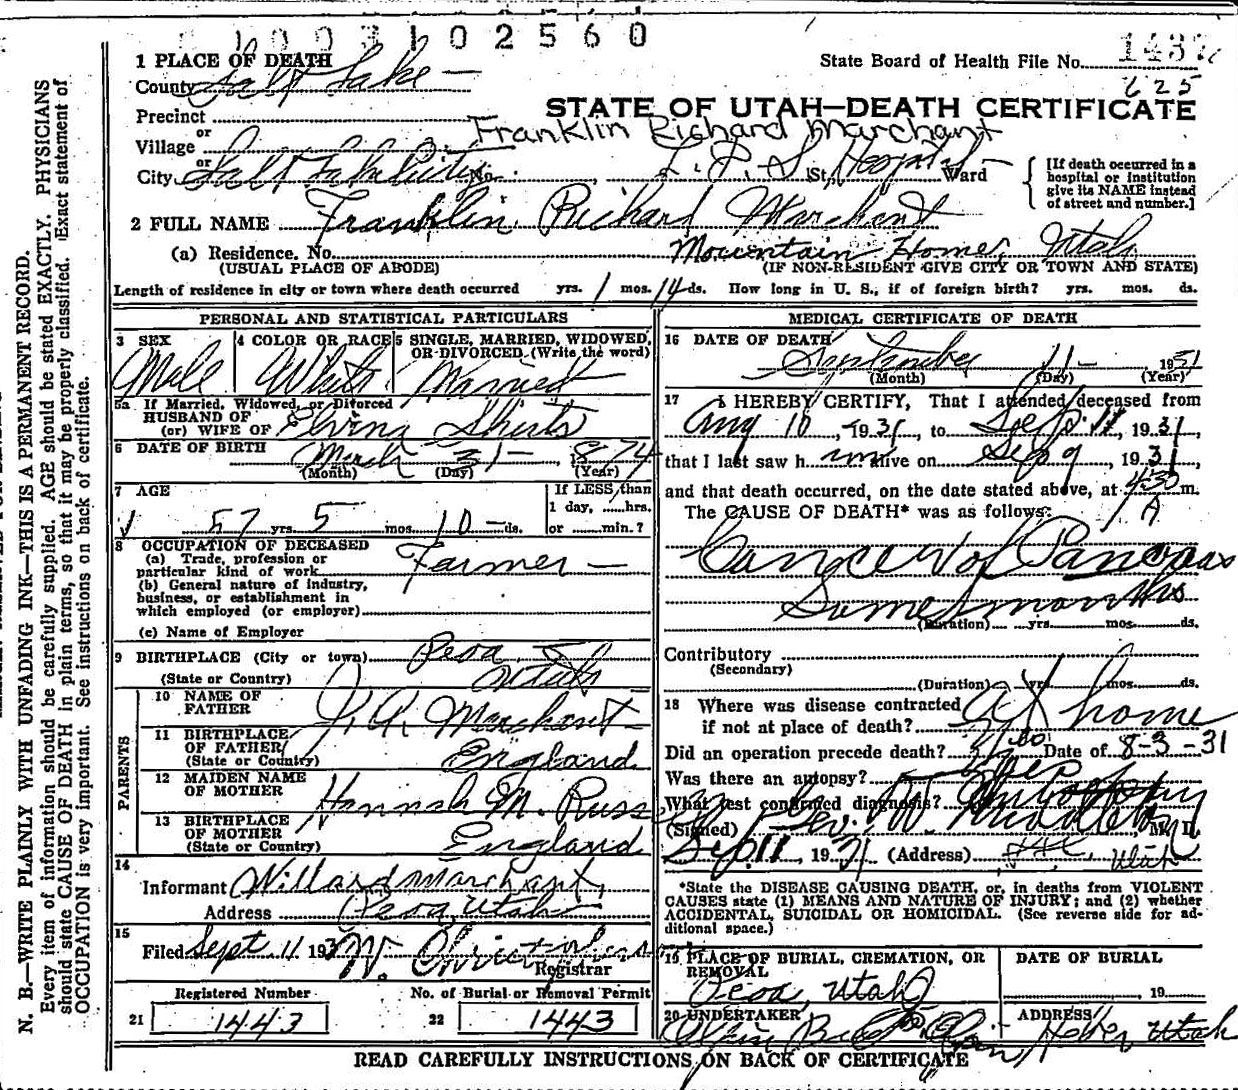 1003102560
1 PLACE OF DEATH
State Board of Health File No.
County Salt Lake —
625
STATE OF UTAH—DEATH CERTIFICATE
Precinct
Franklin Richard Marchant
or
Village
or
City Salt Lake City No. , L. D. S. St, Hospital Ward
[If death occurred in a hospital or institution give its NAME instead of street and number.]
2 FULL NAME Franklin Richard Marchant
(a) Residence. No. Mountain Home, Utah
(USUAL PLACE OF ABODE) (IF NON-RESIDENT GIVE CITY OR TOWN AND STATE)
Length of residence in city or town where death occurred yrs. 1 mos. 14 ds. How long in U. S., if of foreign birth? yrs. mos. ds.
PERSONAL AND STATISTICAL PARTICULARS
3 SEX 4 COLOR OR RACE 5 SINGLE, MARRIED, WIDOWED, OR DIVORCED. (Write the word)
Male White Married
5a If Married, Widowed, or Divorced
HUSBAND OF
(or) WIFE OF Elvina Shirts
6 DATE OF BIRTH March 31 — , 1874
(Month) (Day) (Year)
7 AGE If LESS than
1 day, ......hrs.
57 yrs. 5 mos. 10 — ds. or ......min.?
8 OCCUPATION OF DECEASED
(a) Trade, profession or
particular kind of work Farmer —
(b) General nature of industry,
business, or establishment in
which employed (or employer)
(c) Name of Employer
9 BIRTHPLACE (City or town) Peoa —
(State or Country) Utah
PARENTS
10 NAME OF
FATHER Marchant
11 BIRTHPLACE
OF FATHER
(State or Country) England
12 MAIDEN NAME
OF MOTHER Hannah M. Russ
13 BIRTHPLACE
OF MOTHER
(State or Country) England
14
Informant Willard Marchant,
Address Peoa, Utah
15
Filed Sept. 11 193 W.
Registrar
Registered Number No. of Burial or Removal Permit
21 1443 22 1443
MEDICAL CERTIFICATE OF DEATH
16 DATE OF DEATH
September 11 — 1931
(Month) (Day) (Year)
17 I HEREBY CERTIFY, That I attended deceased from
Aug 10, 1931, to Sep. 11, 1931,
that I last saw h im alive on Sep 9, 1931,
and that death occurred, on the date stated above, at 430 m.
The CAUSE OF DEATH* was as follows: A
Cancer of Pancreas
Some months
(Duration) yrs. mos. ds.
Contributory
(Secondary)
(Duration) yrs. mos. ds.
18 Where was disease contracted
if not at place of death? at home
Did an operation precede death? Date of 8-3-31
Was there an autopsy?
What test confirmed diagnosis?
(Signed) M. D.
Sep 11, 1931 (Address) Utah
*State the DISEASE CAUSING DEATH, or, in deaths from VIOLENT
CAUSES state (1) MEANS AND NATURE OF INJURY; and (2) whether
ACCIDENTAL, SUICIDAL OR HOMICIDAL. (See reverse side for ad-
ditional space.)
19 PLACE OF BURIAL, CREMATION, OR
REMOVAL
Peoa, Utah
DATE OF BURIAL
, 19
20 UNDERTAKER
ADDRESS
Heber Utah
READ CAREFULLY INSTRUCTIONS ON BACK OF CERTIFICATE
N. B.—WRITE PLAINLY WITH UNFADING INK—THIS IS A PERMANENT RECORD.
Every item of information should be carefully supplied. AGE should be stated EXACTLY. PHYSICIANS
should state CAUSE OF DEATH in plain terms, so that it may be properly classified. Exact statement of
OCCUPATION is very important. See instructions on back of certificate.